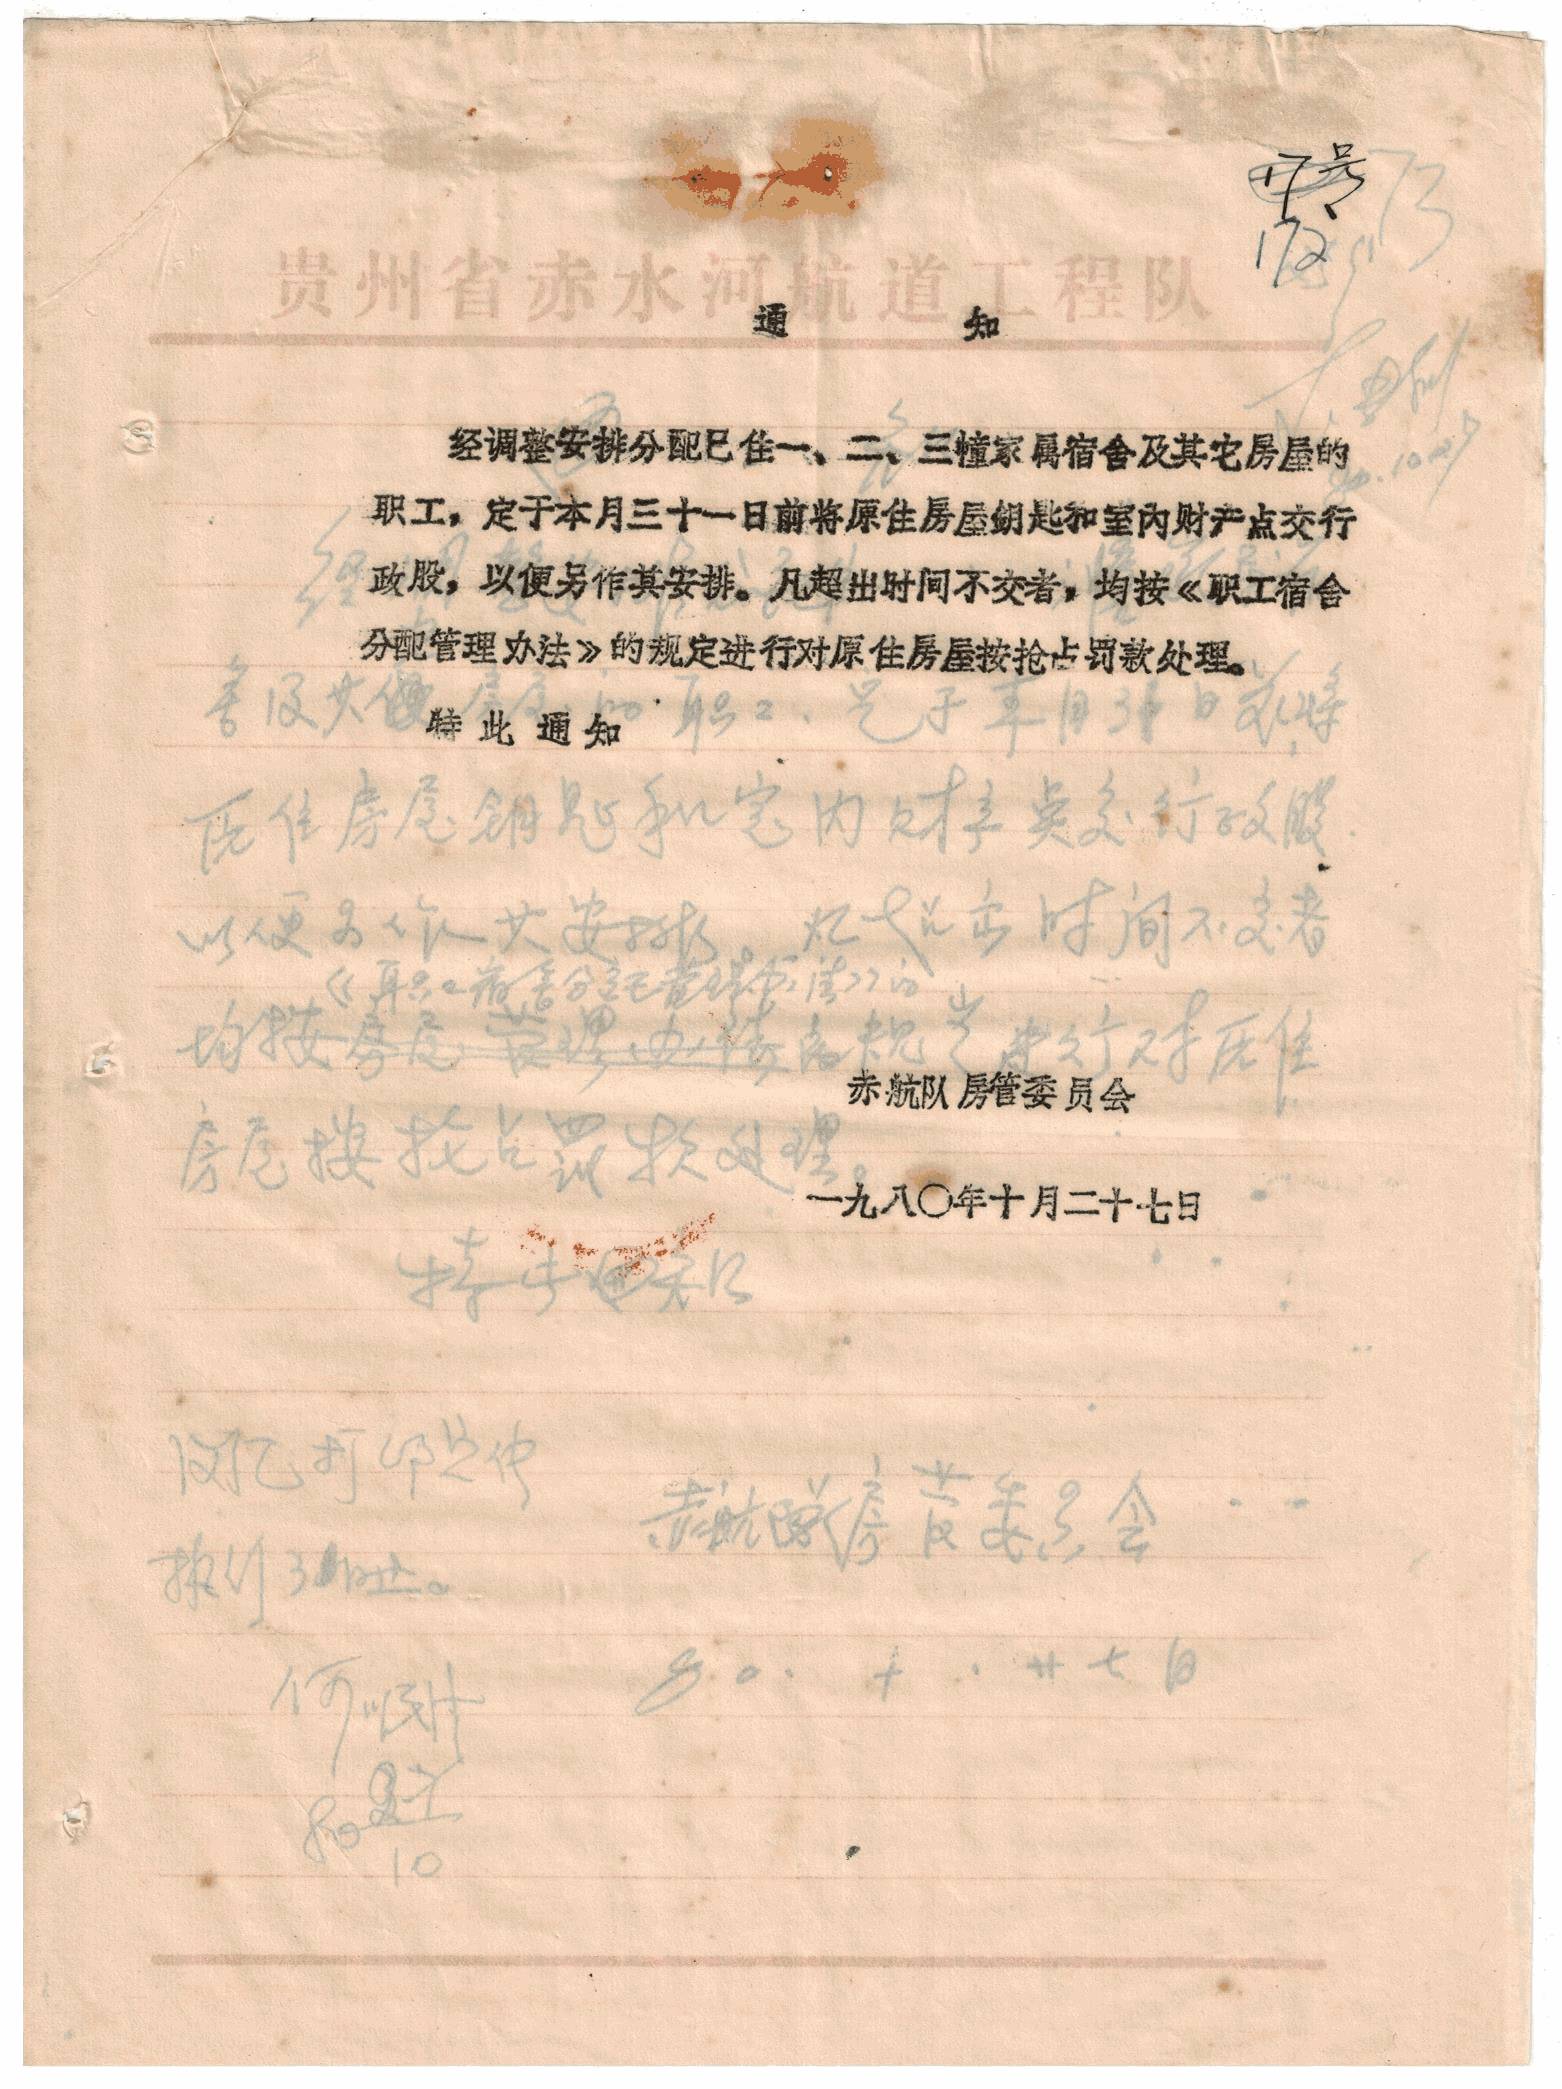 172
73
贵州省赤水河航道工程队
通 知
经调整安排分配已住一、二、三幢家属宿舍及其它房屋的
职工，定于本月三十一日前将原住房屋钥匙和室内财产点交行
政股，以便另作其安排。凡超出时间不交者，均按《职工宿舍
分配管理办法》的规定进行对原住房屋按抢占罚款处理。
特此通知
舍及其他房屋的职工、定于本月31日前将
原住房屋钥匙和室内财产点交行政股
以便另作其安排。凡超出时间不交者
《职工宿舍分配管理办法》的
均按房屋管理办法的规定进行对原住
赤航队房管委员会
房屋按抢占罚款处理。
一九八〇年十月二十七日
特此通知
赤航队房管委员会
八〇.十.廿七日
10